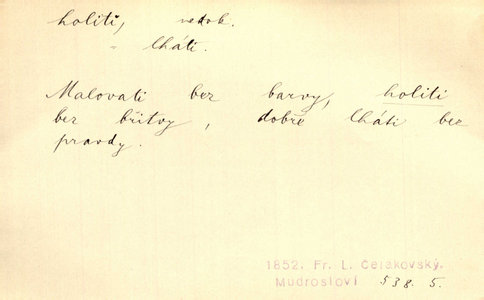 holiti, nedok.
" lháti.
Malovati bez barvy, holiti
bez břitvy, dobře lháti bez
pravdy.
1852. Fr. L. Čelakovský.
Mudrosloví 538. 5.